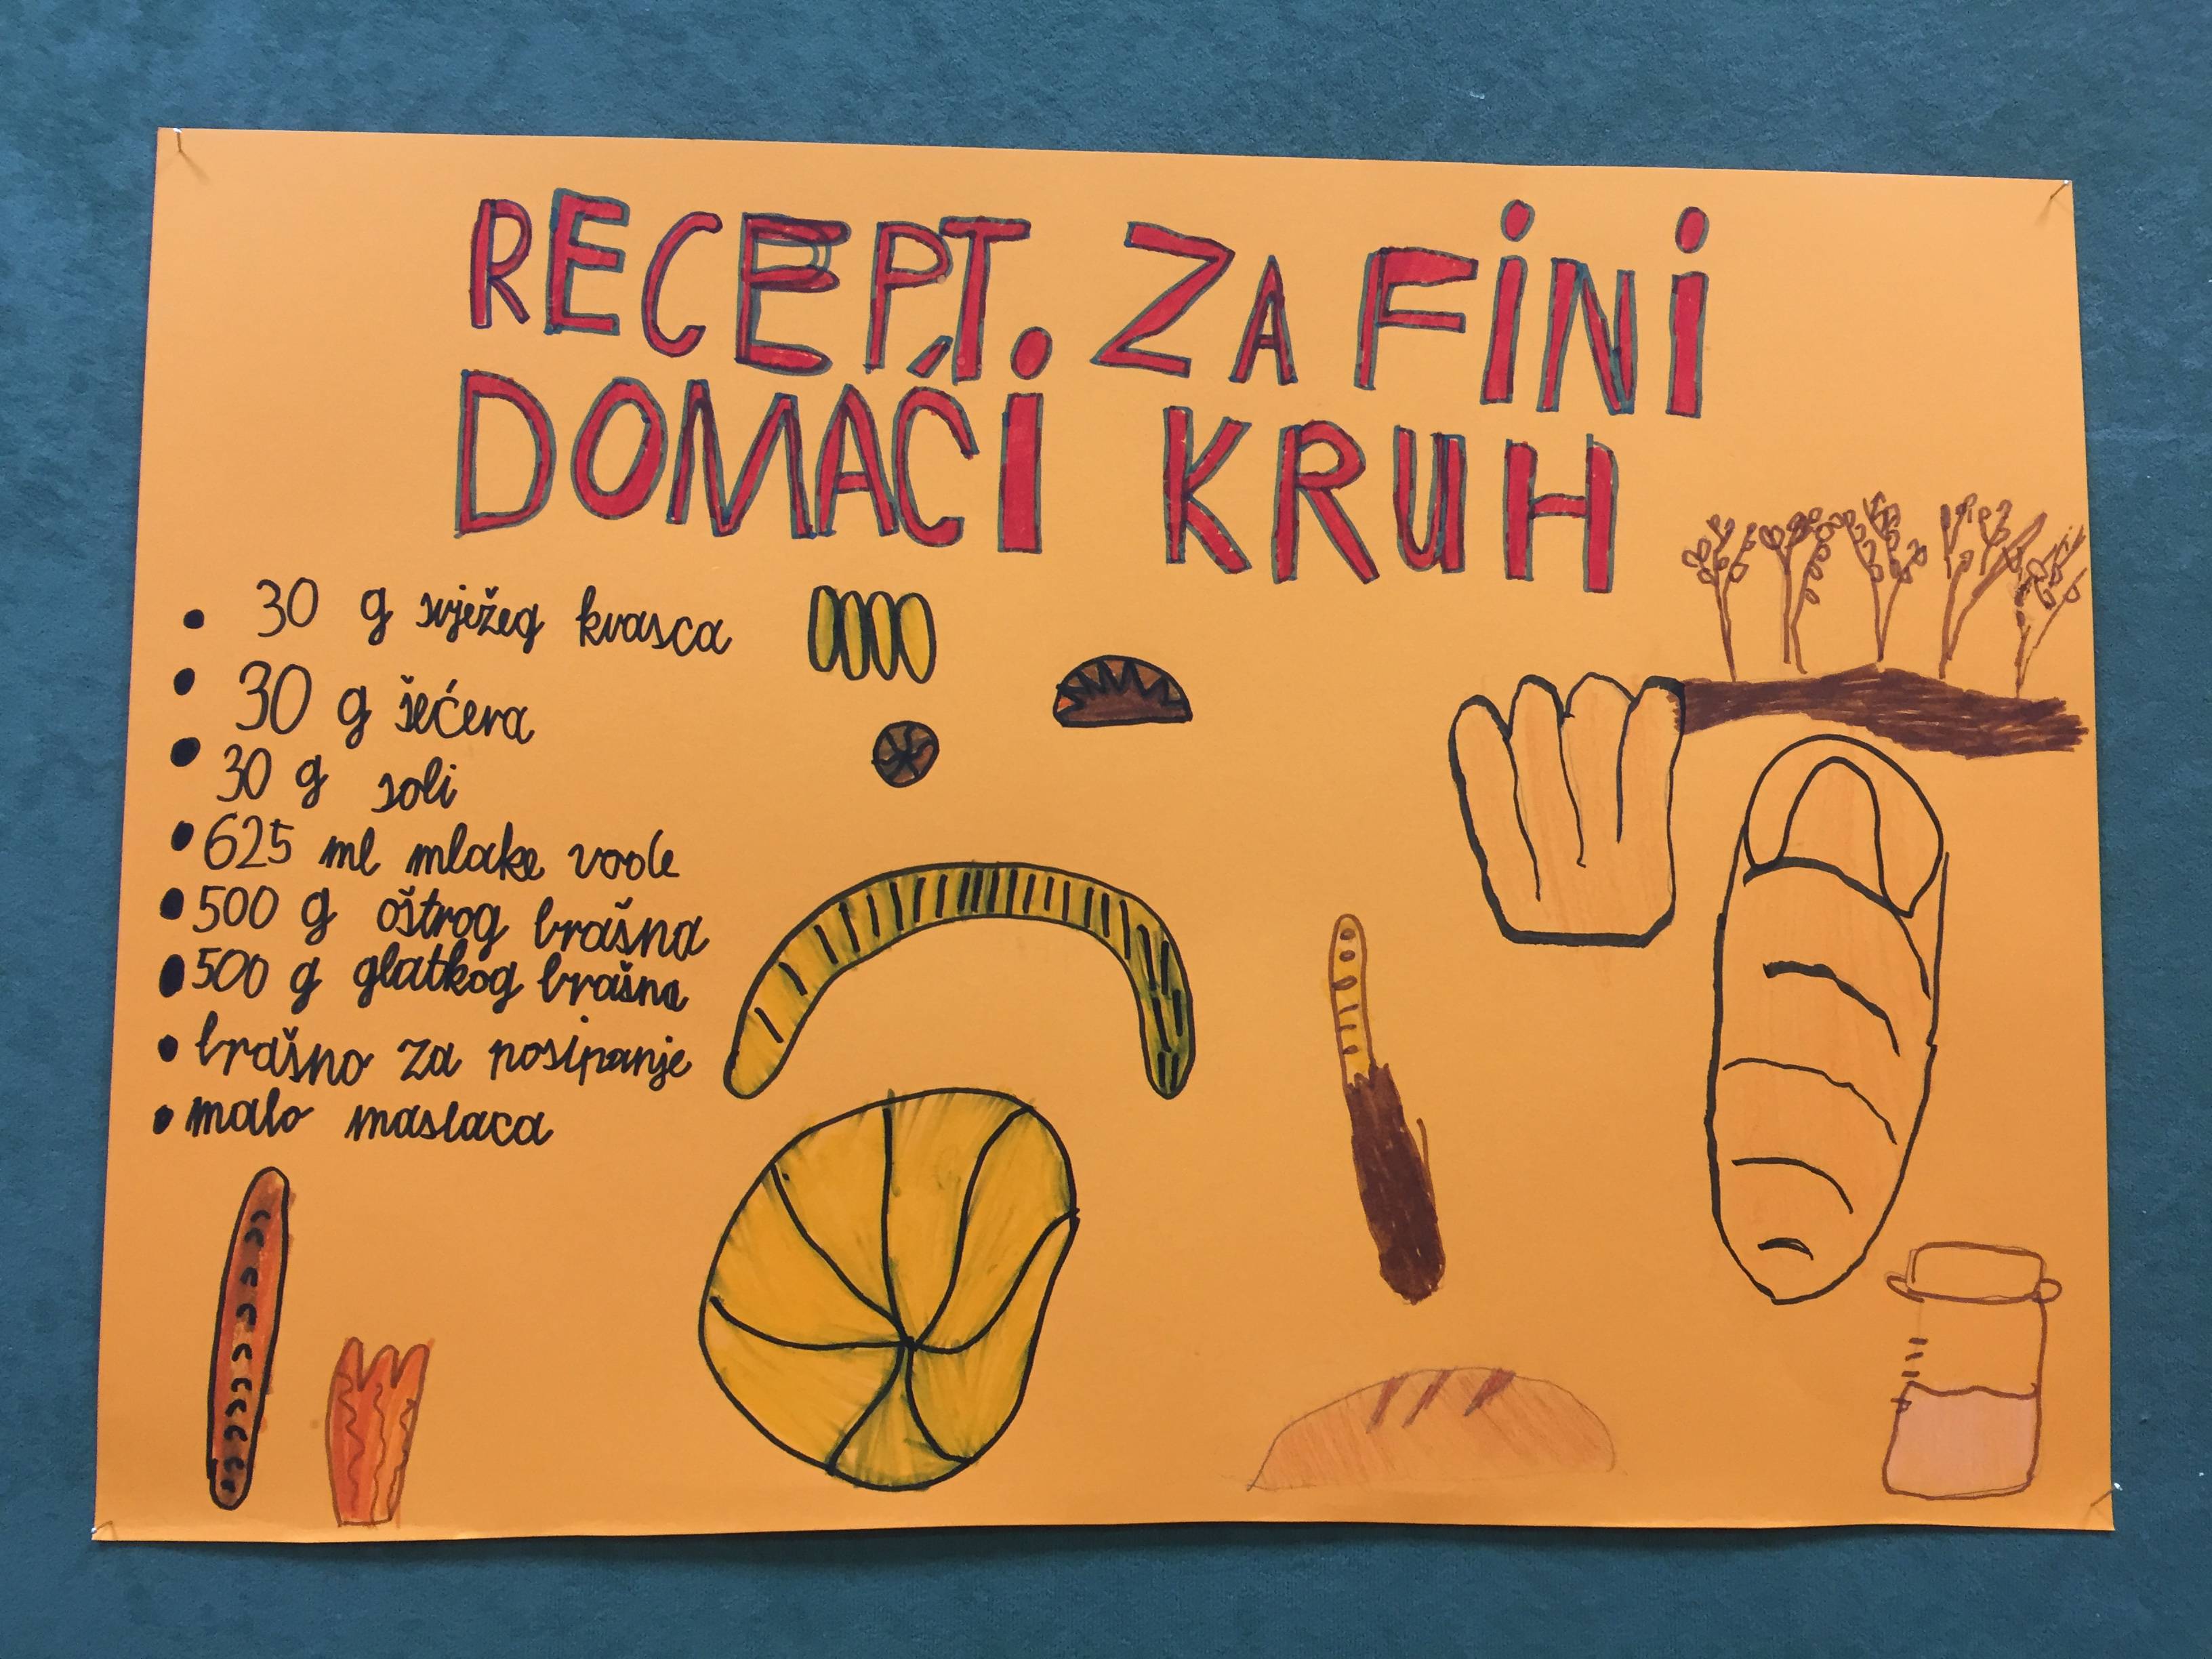 RECEPT. ZA FINI
DOMAĆI KRUH
• 30 g svježeg kvasca
• 30 g šećera
• 30 g soli
• 625 ml mlake vode
• 500 g oštrog brašna
• 500 g glatkog brašna
• brašno za posipanje
• malo maslaca